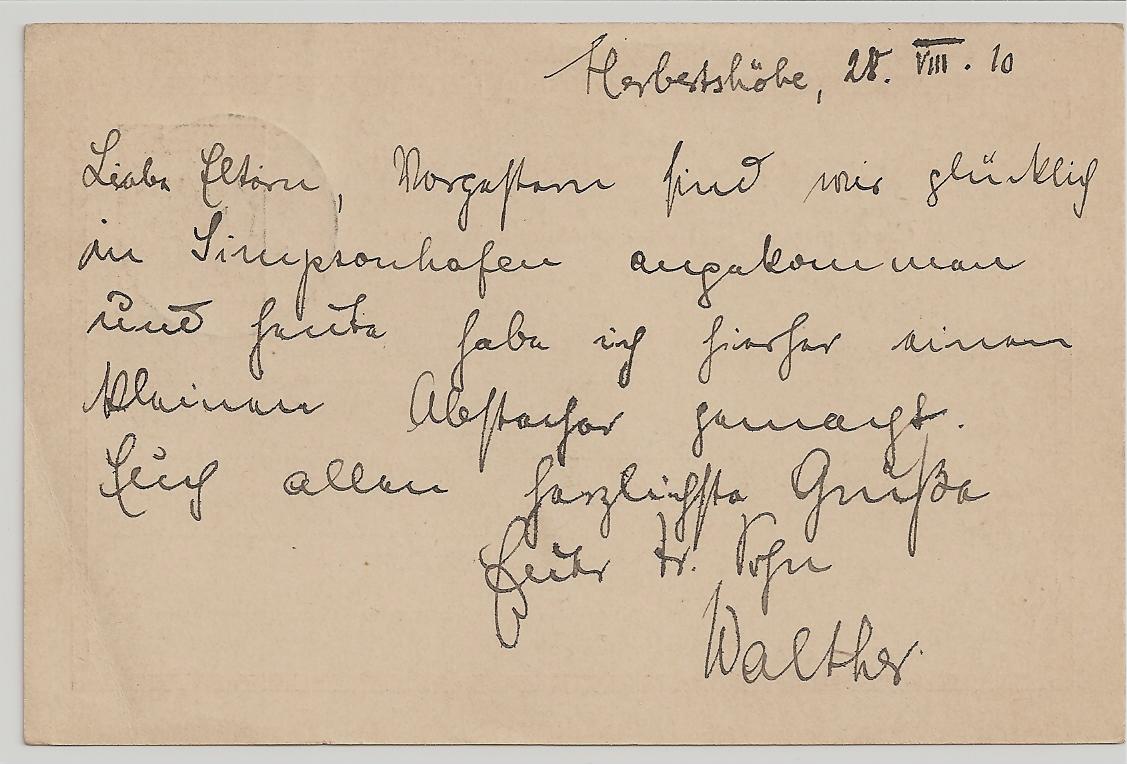 Herbertshöhe, 28. VIII. 10
Liebe Eltern, Vorgestern sind wir glücklich
in Simpsonhafen angekommen
und heute habe ich hierher einen
kleinen Abstecher gemacht.
Euch allen herzlichste Grüße
Euer tr. Sohn
Walther.